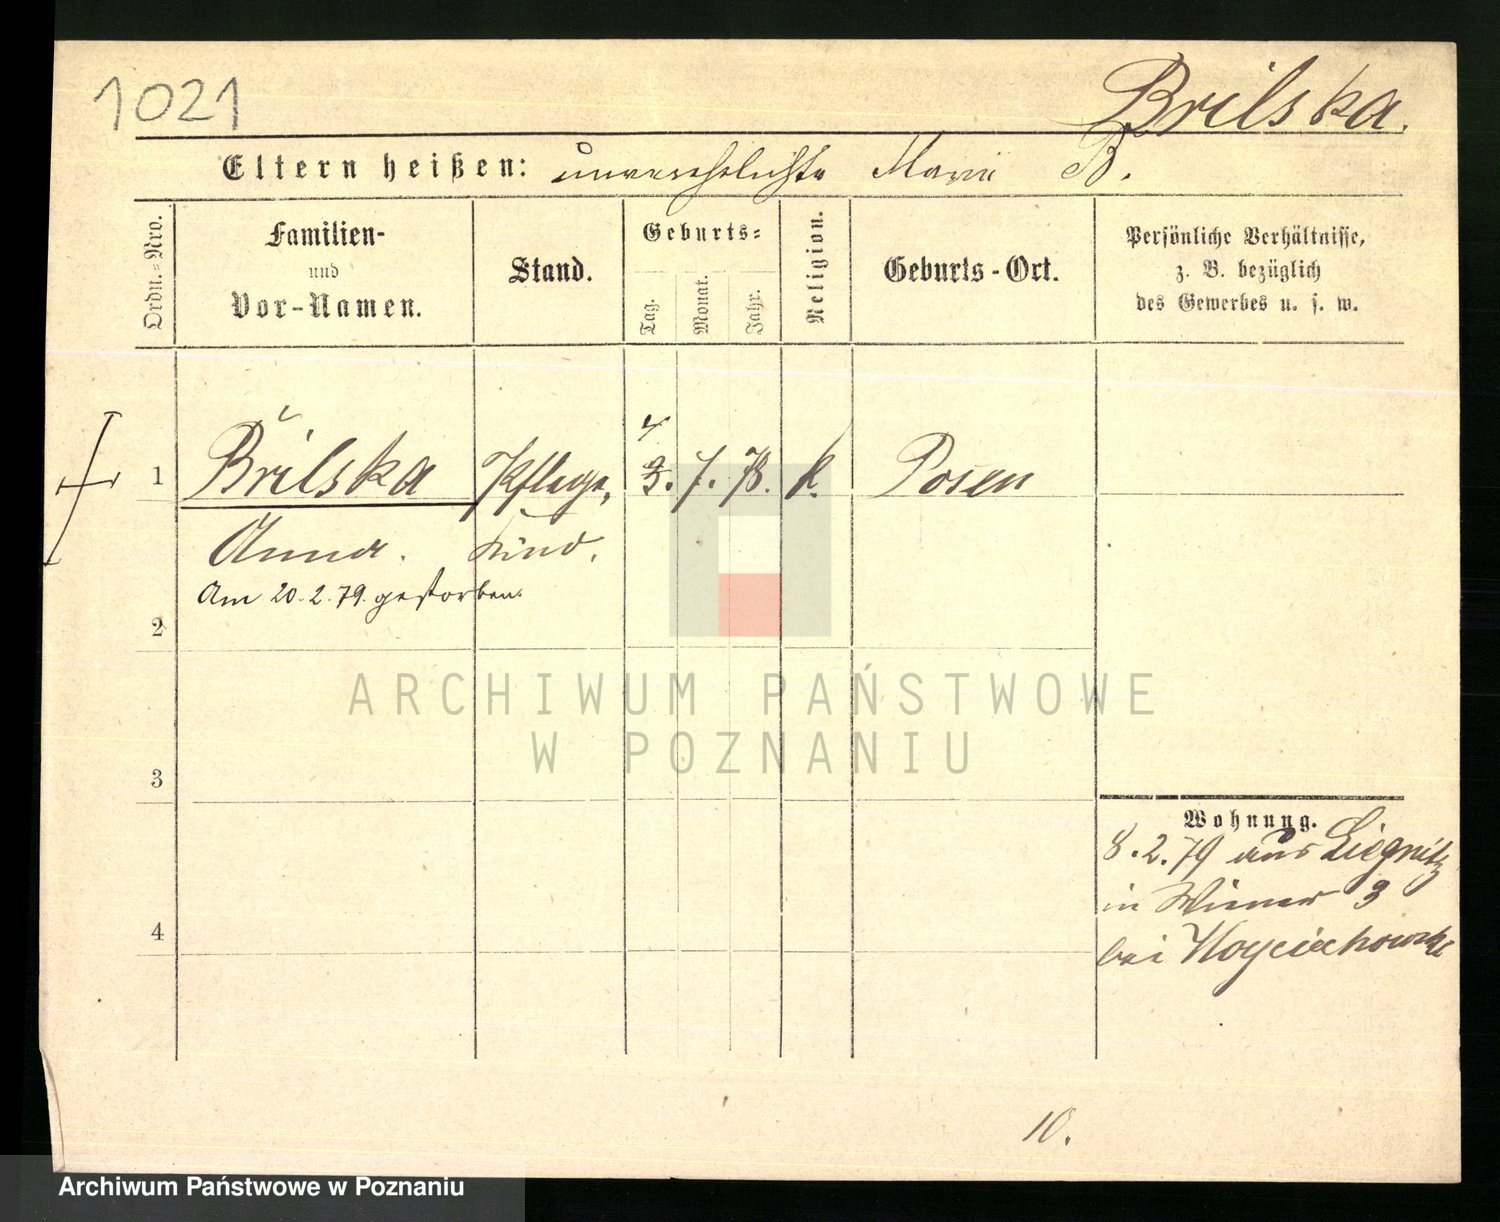 1021
Brilska.
Eltern heißen: unverehelichte Marie B.
Ordn.-Nro.
Familien-
und
Vor-Namen.
Stand.
Geburts-
Tag.
Monat.
Jahr.
Religion.
Geburts-Ort.
Persönliche Verhältnisse,
z. B. bezüglich
des Gewerbes u. s. w.
4
1 Brilska Pflege, 3. 7. 78. k. Posen
Anna. Kind.
Am 20.2.79. gestorben.
2
ARCHIWUM PAŃSTWOWE
W POZNANIU
3
Wohnung.
8.2.79 aus Liegnitz
in Wiener 3
bei Woyciechowski
4
10.
Archiwum Państwowe w Poznaniu